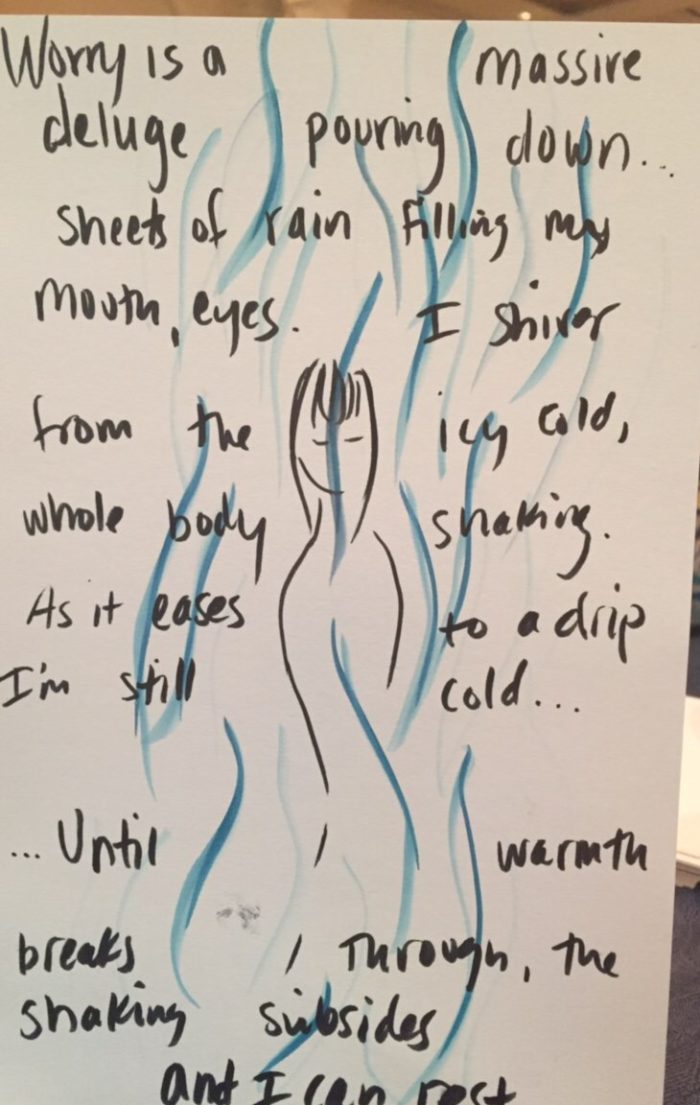 Worry is a massive
deluge pouring down...
sheets of rain filling my
mouth, eyes. I shiver
from the icy cold,
whole body shaking.
As it eases to a drip
I'm still cold...
...Until warmth
breaks through, the
shaking subsides
and I can rest